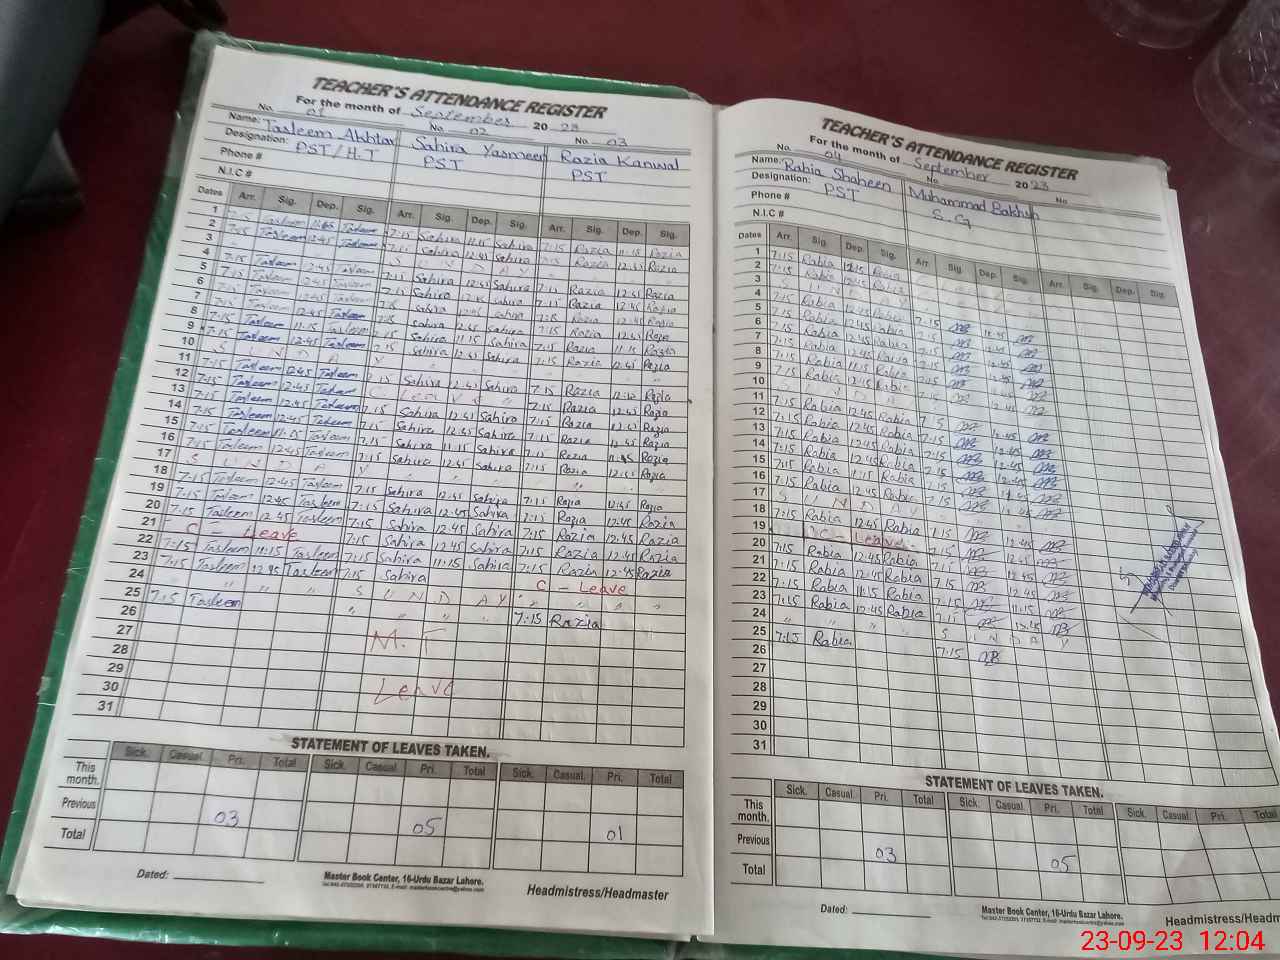 TEACHER'S ATTENDANCE REGISTER
For the month of September 2023
No. 01 No. 02 No. 03
Name: Tasleem Akhtar Sahira Yasmeen Razia Kanwal
Designation: PST/H.T PST PST
Phone #
N.I.C #
Dates Arr. Sig. Dep. Sig. Arr. Sig. Dep. Sig. Arr. Sig. Dep. Sig.
1 7:15 Tasleem Tasleem 7:15 Sahira 11:15 Sahira 7:15 Razia 11:15 Razia
2 7:15 Tasleem 12:45 Tasleem 7:15 Sahira 12:45 Sahira 7:15 Razia 12:45 Razia
3 S U N D A Y
4 7:15 Tasleem 12:45 Tasleem 7:15 Sahira 12:45 Sahira 7:15 Razia 12:45 Razia
5 7:15 Tasleem 12:45 Tasleem 7:15 Sahira 12:45 Sahira 7:15 Razia 12:45 Razia
6 7:15 Tasleem 12:45 Tasleem Sahira 12:45 Sahira Razia 12:45 Razia
7 7:15 Tasleem 12:45 Tasleem Sahira 12:45 Sahira 7:15 Razia 12:45 Razia
8 7:15 Tasleem 11:15 Tasleem 7:15 Sahira 11:15 Sahira 7:15 Razia 11:15 Razia
9 7:15 Tasleem 12:45 Tasleem 7:15 Sahira 12:45 Sahira 7:15 Razia 12:45 Razia
10 S U N D A Y
11 7:15 Tasleem 12:45 Tasleem 7:15 Sahira 12:45 Sahira 7:15 Razia Razia
12 7:15 Tasleem 12:45 Tasleem C Leave 7:15 Razia 12:45 Razia
13 7:15 Tasleem 12:45 Tasleem 7:15 Sahira 12:45 Sahira 7:15 Razia 12:45 Razia
14 7:15 Tasleem 12:45 Tasleem 7:15 Sahira 12:45 Sahira 7:15 Razia 12:45 Razia
15 7:15 Tasleem 11:15 Tasleem 7:15 Sahira 11:15 Sahira 7:15 Razia Razia
16 7:15 Tasleem 12:45 Tasleem 7:15 Sahira 12:45 Sahira 7:15 Razia 12:45 Razia
17 S U N D A Y
18 7:15 Tasleem 12:45 Tasleem 7:15 Sahira 12:45 Sahira 7:15 Razia 12:45 Razia
19 7:15 Tasleem 12:45 Tasleem 7:15 Sahira 12:45 Sahira 7:15 Razia 12:45 Razia
20 7:15 Tasleem 12:45 Tasleem 7:15 Sahira 12:45 Sahira 7:15 Razia 12:45 Razia
21 C - Leave 7:15 Sahira 12:45 Sahira 7:15 Razia 12:45 Razia
22 7:15 Tasleem 11:15 Tasleem 7:15 Sahira 11:15 Sahira 7:15 Razia 12:45 Razia
23 7:15 Tasleem 12:45 Tasleem 7:15 Sahira C - Leave
24 " " S U N D A Y " " "
25 7:15 Tasleem " " " " 7:15 Razia
26
27 M.T
28
29
30 Leave
31
STATEMENT OF LEAVES TAKEN.
Sick. Casual. Pri. Total Sick. Casual. Pri. Total Sick. Casual. Pri. Total
This month.
Previous 03 05 01
Total
Dated:
Master Book Center, 16-Urdu Bazar Lahore.
Headmistress/Headmaster
TEACHER'S ATTENDANCE REGISTER
For the month of September 2023
No. 04 No No
Name: Rabia Shaheen Muhammad Bakhsh
Designation: PST S.G
Phone #
N.I.C #
Dates Arr. Sig. Dep. Sig. Arr. Sig. Dep. Sig. Arr. Sig. Dep. Sig.
1 7:15 Rabia Rabia
2 7:15 Rabia 12:45 Rabia
3 S U N D A Y
4 7:15 Rabia 12:45 Rabia 7:15 12:45
5 7:15 Rabia 12:45 Rabia 7:15 12:45
6 7:15 Rabia 12:45 Rabia 7:15 12:45
7 7:15 Rabia 12:45 Rabia 7:15 12:45
8 7:15 Rabia 11:15 Rabia 7:15
9 7:15 Rabia 12:45 Rabia 7:15 12:45
10 S U N D A Y
11 7:15 Rabia 12:45 Rabia 12:45
12 7:15 Rabia 12:45 Rabia 7:15 12:45
13 7:15 Rabia 12:45 Rabia 7:15 12:45
14 7:15 Rabia 12:45 Rabia 7:15 12:45
15 7:15 Rabia 11:15 Rabia 7:15
16 7:15 Rabia 12:45 Rabia 7:15 12:45
17 S U N D A Y
18 7:15 Rabia 12:45 Rabia 7:15 12:45
19 C - Leave 7:15 12:45
20 7:15 Rabia 12:45 Rabia 7:15 12:45
21 7:15 Rabia 12:45 Rabia 7:15 12:45
22 7:15 Rabia 11:15 Rabia 7:15 11:15
23 7:15 Rabia 12:45 Rabia 7:15 12:45
24 " " " " S U N D A Y
25 7:15 Rabia 7:15
26
27
28
29
30
31
STATEMENT OF LEAVES TAKEN.
Sick. Casual. Pri. Total Sick. Casual. Pri. Total Sick. Casual. Pri. Total
This month.
Previous 03 05
Total
Dated:
Master Book Center, 16-Urdu Bazar Lahore.
Headmistress/Headm
23-09-23 12:04